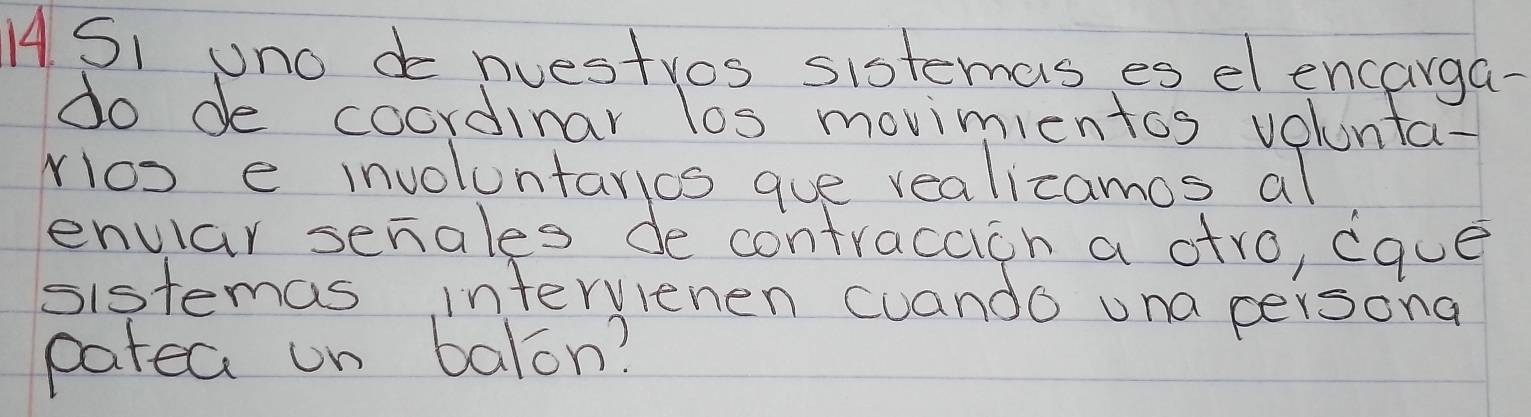 14. Si uno de nuestros sistemas es el encarga-
do de coordinar los movimientos volunta-
rios e involuntarios que realizamos al
enviar señales de contracción a otro, ¿qué
sistemas intervienen cuando una persona
patea un balón?